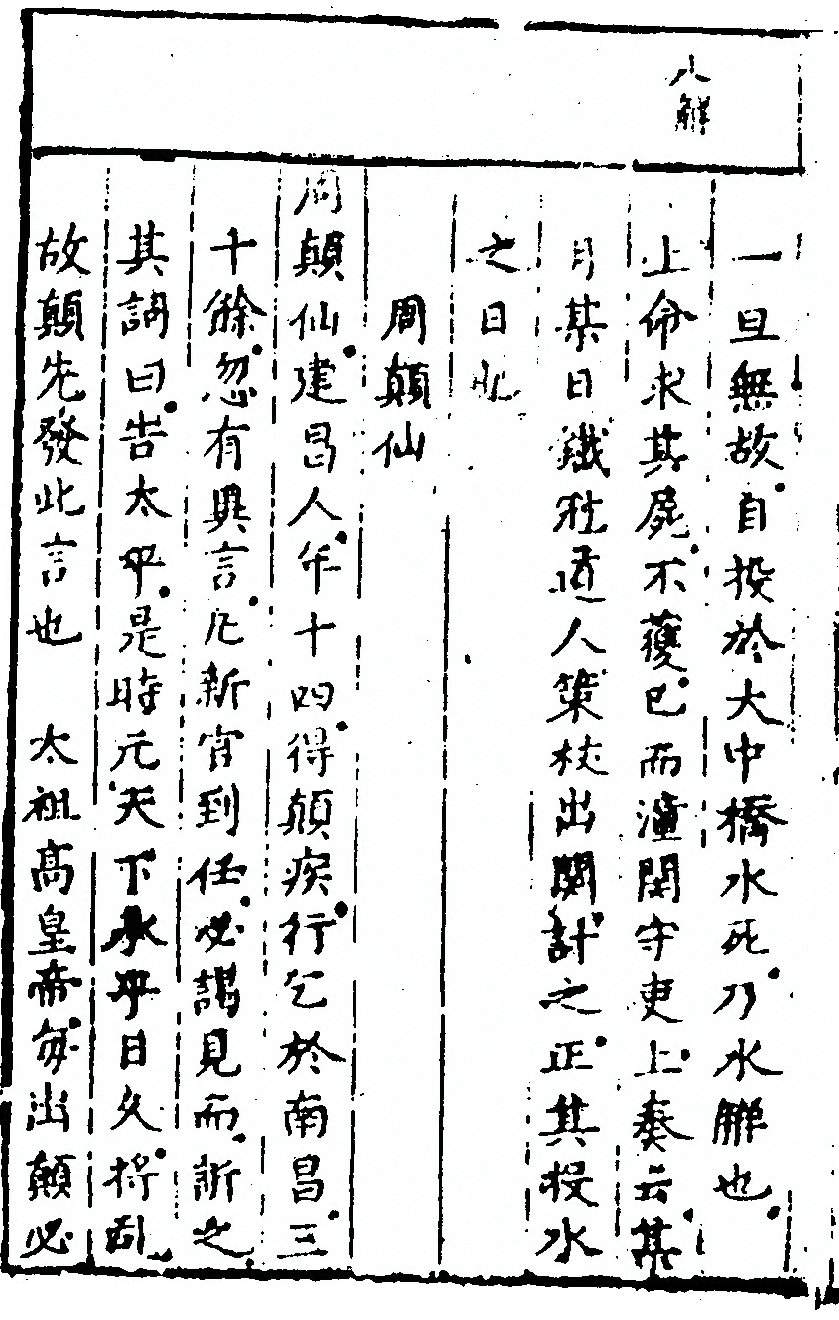 八解
一旦無故自投於大中橋水死乃水解也
上命求其屍不獲已而潼関守吏上奏云某
月某日鐵冠道人策杖出関計之正其投水
之日也
周顛仙
周顛仙建昌人年十四得顛疾行乞於南昌三
十餘忽有異言凡新官到任必謁見而訴之
其詞曰告太平是時元天下承平日久将亂
故顛先發此言也　太祖高皇帝每出顛必